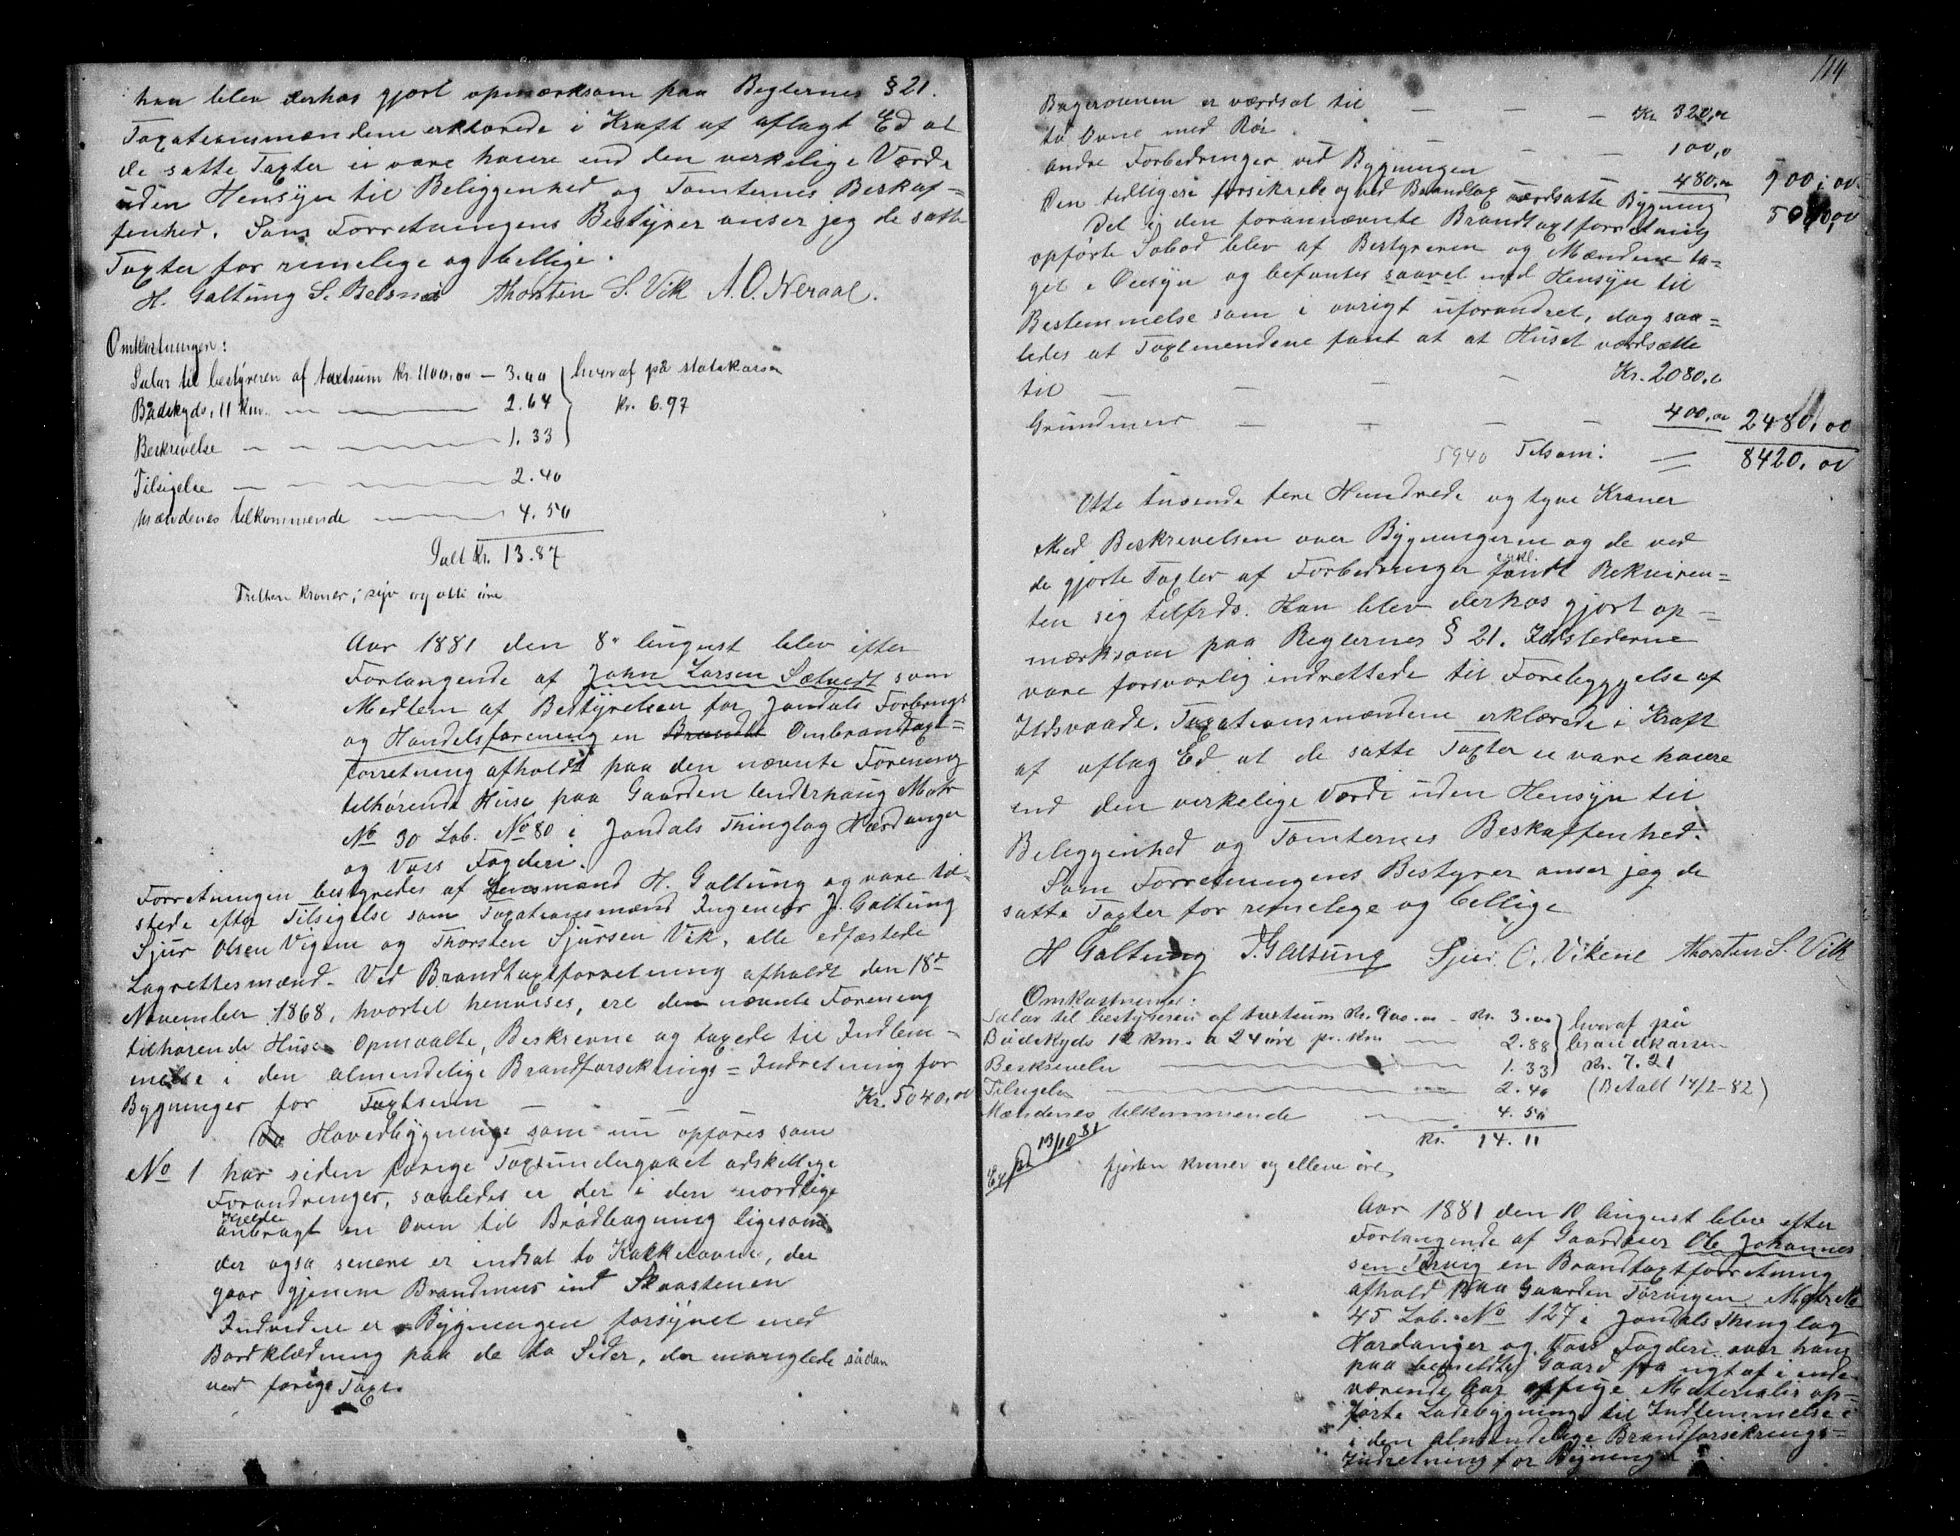 han blev derhos gjort opmærksom paa Reglernes § 21.
Taxationsmændene erklærede i Kraft af aflagt Ed at
de satte Taxter ei vare høiere end den virkelige Værdi
uden Hensyn til Beliggenhed og Tomternes Beskaf=
fenhed. Som Forretningens Bestyrer anser jeg de satte
Taxter for rimelige og billige.
H. Galtung S. Belsnes Thorsten S. Vik A. O. Neraal.
Omkostninger:
Salar til bestyreren af taxtsum kr. 1100,00 — 3.00 hvoraf på statskassen
Bådskyds, 11 km. — 2.64 kr. 6.97
Beskrivelse — 1.33
Tilsigelse — 2.40
Mændenes tilkommende — 4.50
Ialt kr. 13.87
Tretten kroner, syv og otti øre
Aar 1881 den 8de August blev efter
Forlangende af John Larsen Sætvedt som
Medlem af Bestyrelsen for Jondals Forbrugs
og Handelsforening en Brandt Ombrandtaxt=
forretning afholdt paa den nævnte Forening
tilhørende Huse paa Gaarden Underhaug Matr
No 30 Løb. No 80 i Jondals Thinglag Hardanger
og Voss Fogderi.
Forretningen bestyredes af Lensmand H. Galtung og vare til-
stede efter Tilsigelse som Taxationsmænd Ingeniør J. Galtung
Sjur Olsen Vigene og Thorsten Sjursen Vik, alle edfæstede
Lagrettesmænd. Ved Brandtaxtforretning afholdt den 18de
November 1868, hvortil henvises, ere den nævnte Forening
tilhørende Huse Opmaalte, Beskrevne og taxede til Indlem-
melse i den almindelige Brandforsikrings=Indretning for
Bygninger for Taxtsum — Kr. 5040,00
Hovedbygninge som nu opføres som
No 1 har siden forrige Taxt undergaaet adskillige
Forandringer, saaledes er der i den nordlige
Kjelder
anbragt en Oven til Brødbagning ligesom
der også senere er indsat to Kakkelovne, der
gaar gjenem Brandmur ind Skaastenen
Indvidere er Bygningen forsynet med
Bordklædning paa de to Sider, der manglede sådan
ved forige Taxt.
114
Bagerovnen er værdsat til — Kr. 320,00
to Ovne med Rør — 100,0
andre Forbedringer ved Bygningen — 480,00 900,00
Den tidligere forsikrede og ved Brandtax værdsatte Bygning 5040,00
Det i den forannævnte Brandtaxtforretning
opførte Søbod blev af Bestyreren og Mændene ta=
get i Øiesyn og befantes saavel med Hensyn til
Bestemmelse som i øvrigt uforandret, dog saa=
ledes at Taxtmendene fant at at Huset værdsætte
til — Kr. 2080,0
Grundmur — 400,00 2480,00
5940 Tilsam: 8420,00
Otte tusende fire Hundrede og tyve Kroner
Med Beskrivelsen over Bygningerne og de ved
de gjorte Taxter af Forbedringer fandt Rekviren=
ten sig tilfreds. Han blev derhos gjort op=
mærksom paa Reglernes § 21. Ildstederne
vare forsvarlig indrettede til Forebyggelse af
Ildsvaade. Taxationsmændene erklærede i Kraft
af aflag Ed at de satte Taxter ei vare høiere
end den virkelige Værdi uden Hensyn til
Beliggenhed og Tomternes Beskaffenhed.
Som Forretningens Bestyrer anser jeg de
satte Taxter for rimelige og billige
H Galtung J. Galtung Sjur O. Vikene Thorsten S. Vik
Omkostninger:
Salar til bestyreren af taxtsum Kr. 900.00 — Kr. 3.00 hvoraf på
Bådskyds 12 km. a 24 øre pr. km — 2.88 brandkassen
Beskrivelse — 1.33 Kr. 7.21
Tilsigelse — 2.40 (Betalt 14/2-82)
Mændenes tilkommende — 4.50
Kr. 14.11
13/10 81
fjorten kroner og elleve øre
Aar 1881 den 10 August blev efter
Forlangende af Gaardbruger Ole Johannes
sen Torvig en Brandtaxtforretning
afhold paa Gaarden Torvigen Matr No
45 Løb. No 127 i Jondals Thinglag
Hardanger og Voss Fogderi over hans
paa bemeldte Gaard fra nyt af i inde-
værende Aar opførte Materialer op=
førte Ladebygning til Indlemmelse i
i den almindelige Brandforsikrings=
Indretning for Bygninger.